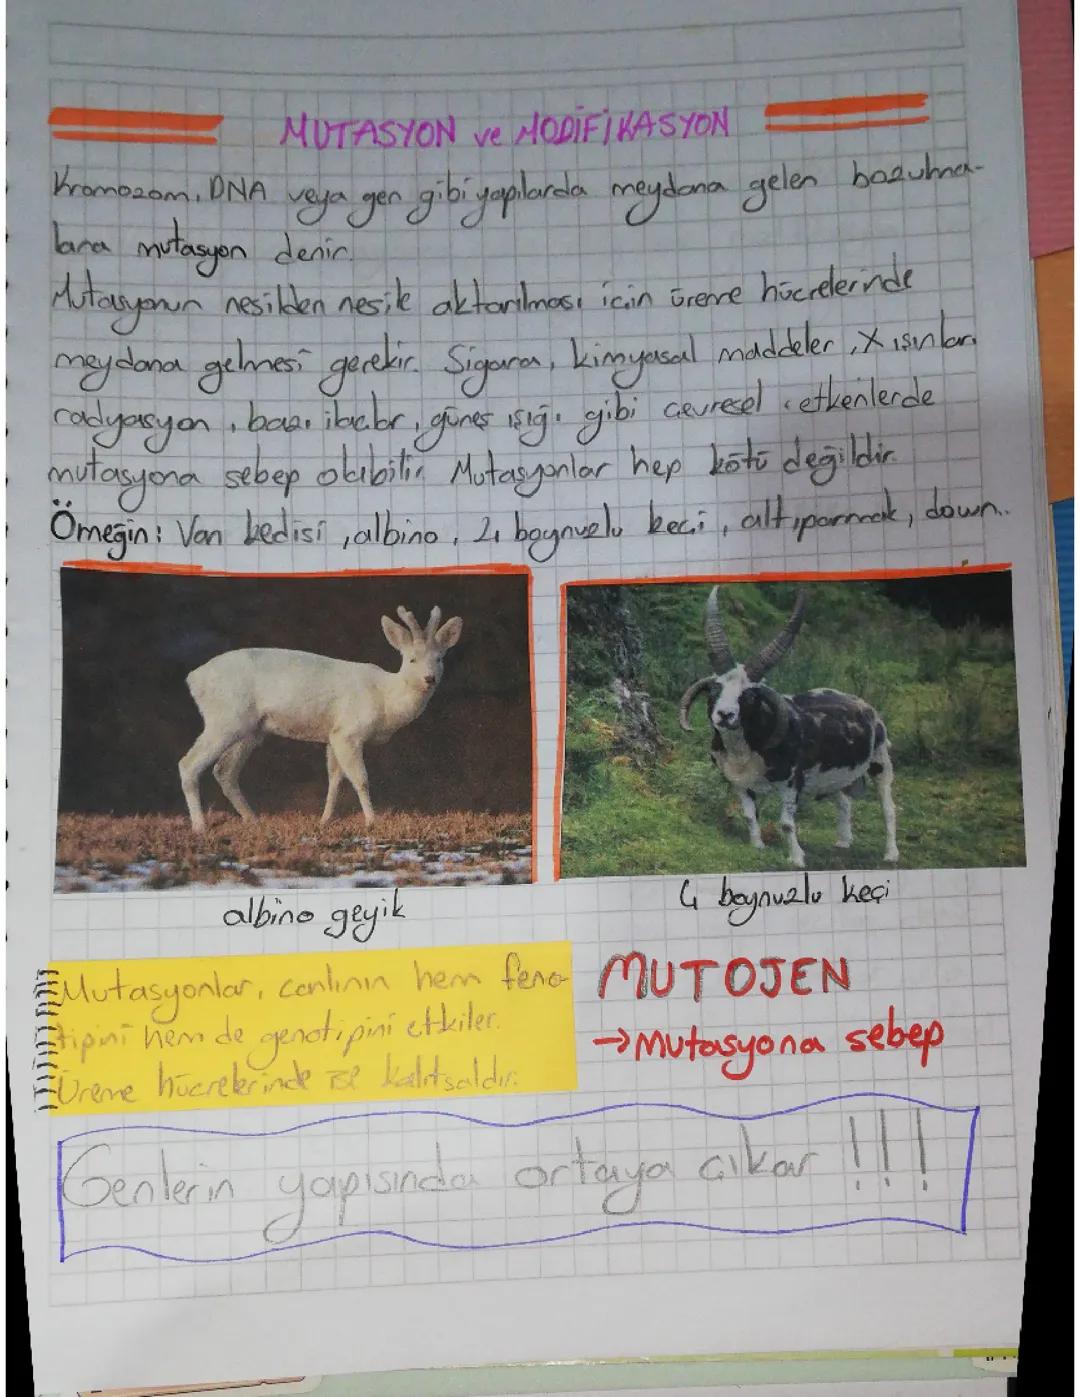 MUTASYON ve MODİFİKASYON
Kromozom, DNA veya gen gibi yapılarda meydana gelen bozulma-
lara mutasyon denir.
Mutasyonun nesilden nesile aktarılması için üreme hücrelerinde
meydana gelmesi gerekir. Sigara, kimyasal maddeler, X ışınları
radyasyon, bazı ilaçlar, güneş ışığı gibi çevresel etkenlerde
mutasyona sebep olabilir. Mutasyonlar hep kötü değildir.
Örneğin: Van kedisi, albino, 4 boynuzlu keçi, altıparmak, down..
albino geyik
4 boynuzlu keçi
Mutasyonlar, canlının hem feno
tipini hem de genotipini etkiler.
Üreme hücrelerinde ise kalıtsaldır.
MUTOJEN
→Mutasyona sebep
Genlerin yapısında ortaya çıkar !!!